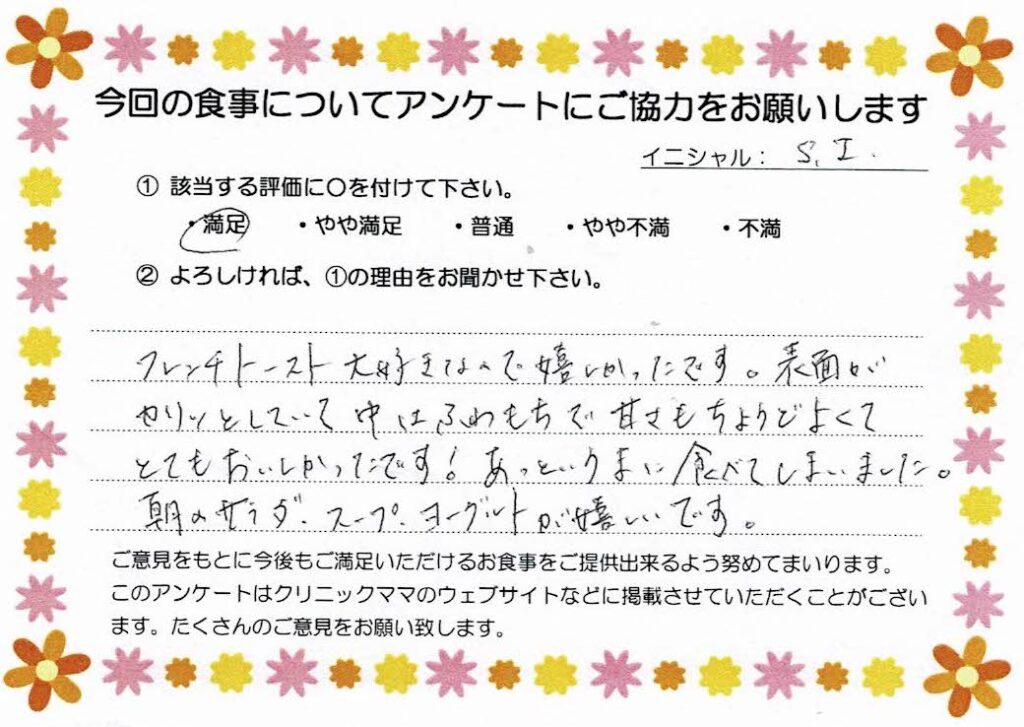 今回の食事についてアンケートにご協力をお願いします
イニシャル： S. I.
① 該当する評価に〇を付けて下さい。
・満足 ・やや満足 ・普通 ・やや不満 ・不満
② よろしければ、①の理由をお聞かせ下さい。
フレンチトースト大好きなので嬉しかったです。表面が
カリッとしていて中はふわもちで甘さもちょうどよくて
とてもおいしかったです！あっというまに食べてしまいました。
朝のサラダ、スープ、ヨーグルトが嬉しいです。
ご意見をもとに今後もご満足いただけるお食事をご提供出来るよう努めてまいります。
このアンケートはクリニックママのウェブサイトなどに掲載させていただくことがござい
ます。たくさんのご意見をお願い致します。